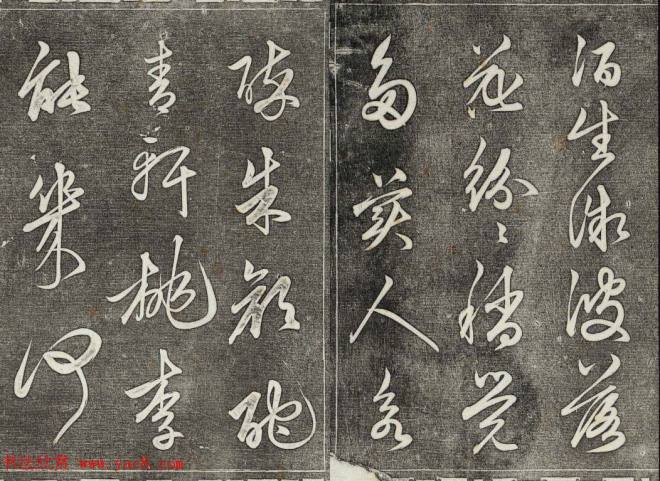 酒生微波落
花紛々稍覺
多美人欲
醉朱顏酡
青軒桃李
能幾何
书法欣赏 www.yac8.com